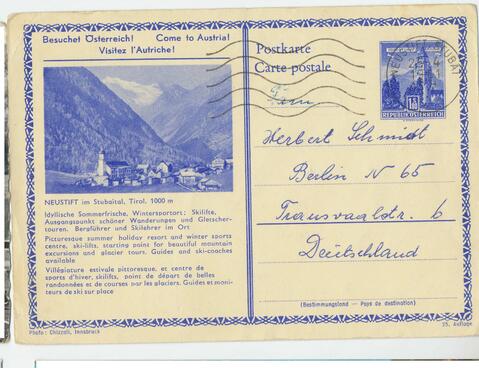 Besuchet Österreich! Come to Austria!
Visitez l'Autriche!
NEUSTIFT im Stubaital, Tirol. 1000 m
Idyllische Sommerfrische, Wintersportort: Skilifte,
Ausgangspunkt schöner Wanderungen und Gletscher-
touren. Bergführer und Skilehrer im Ort
Picturesque summer holiday resort and winter sports
centre, ski-lifts, starting point for beautiful mountain
excursions and glacier tours. Guides and ski-coaches
available
Villégiature estivale pittoresque, et centre de
sports d'hiver, skilifts, point de départ de belles
randonnées et de courses par les glaciers. Guides et moni-
teurs de ski sur place
Photo: Chizzali, Innsbruck
Postkarte
Carte postale
1.80
REPUBLIK ÖSTERREICH
Herbert Schmidt
Berlin N 65
Transvaalstr. 6
Deutschland
(Bestimmungsland — Pays de destination)
25. Auflage